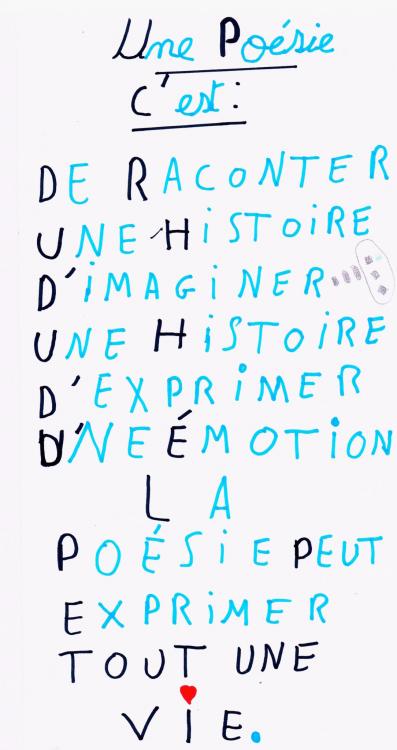 Une Poésie
C'est :
DE RACONTER
UNE HiSTOiRE
D'iMAGiNER....
UNE HiSTOiRE
D'EXPRiMER
D'UNE ÉMOTiON
LA
POÉSiE PEUT
EXPRiMER
TOUT UNE
ViE.